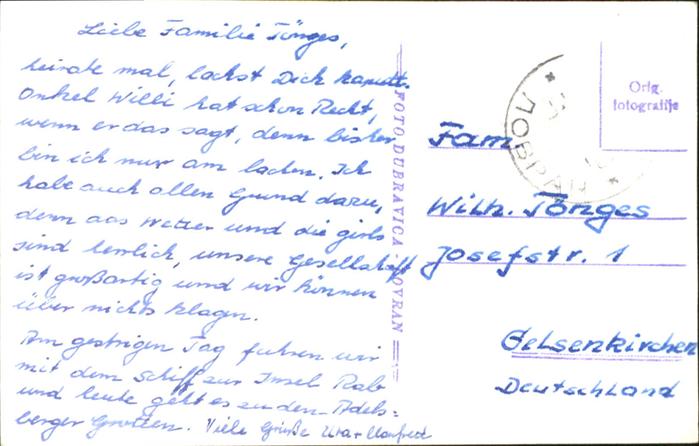 Liebe Familie Tönges,
heirate mal, lachst Dich kaputt.
Onkel Willi hat schon Recht,
wenn er das sagt, denn bisher
bin ich nur am lachen. Ich
habe auch allen Grund dazu,
denn das Wetter und die girls
sind herrlich, unsere Gesellschaft
ist großartig und wir können
über nichts klagen.
Am gestrigen Tag fuhren wir
mit dem Schiff zur Insel Rab
und heute geht es zu den Adels-
berger Grotten. Viele Grüße Uta + Manfred
FOTO DUBRAVICA LOVRAN
ЛОВРАН
Orig.
fotografije
Fam
Wilh. Tönges
Josefstr. 1
Gelsenkirchen
Deutschland